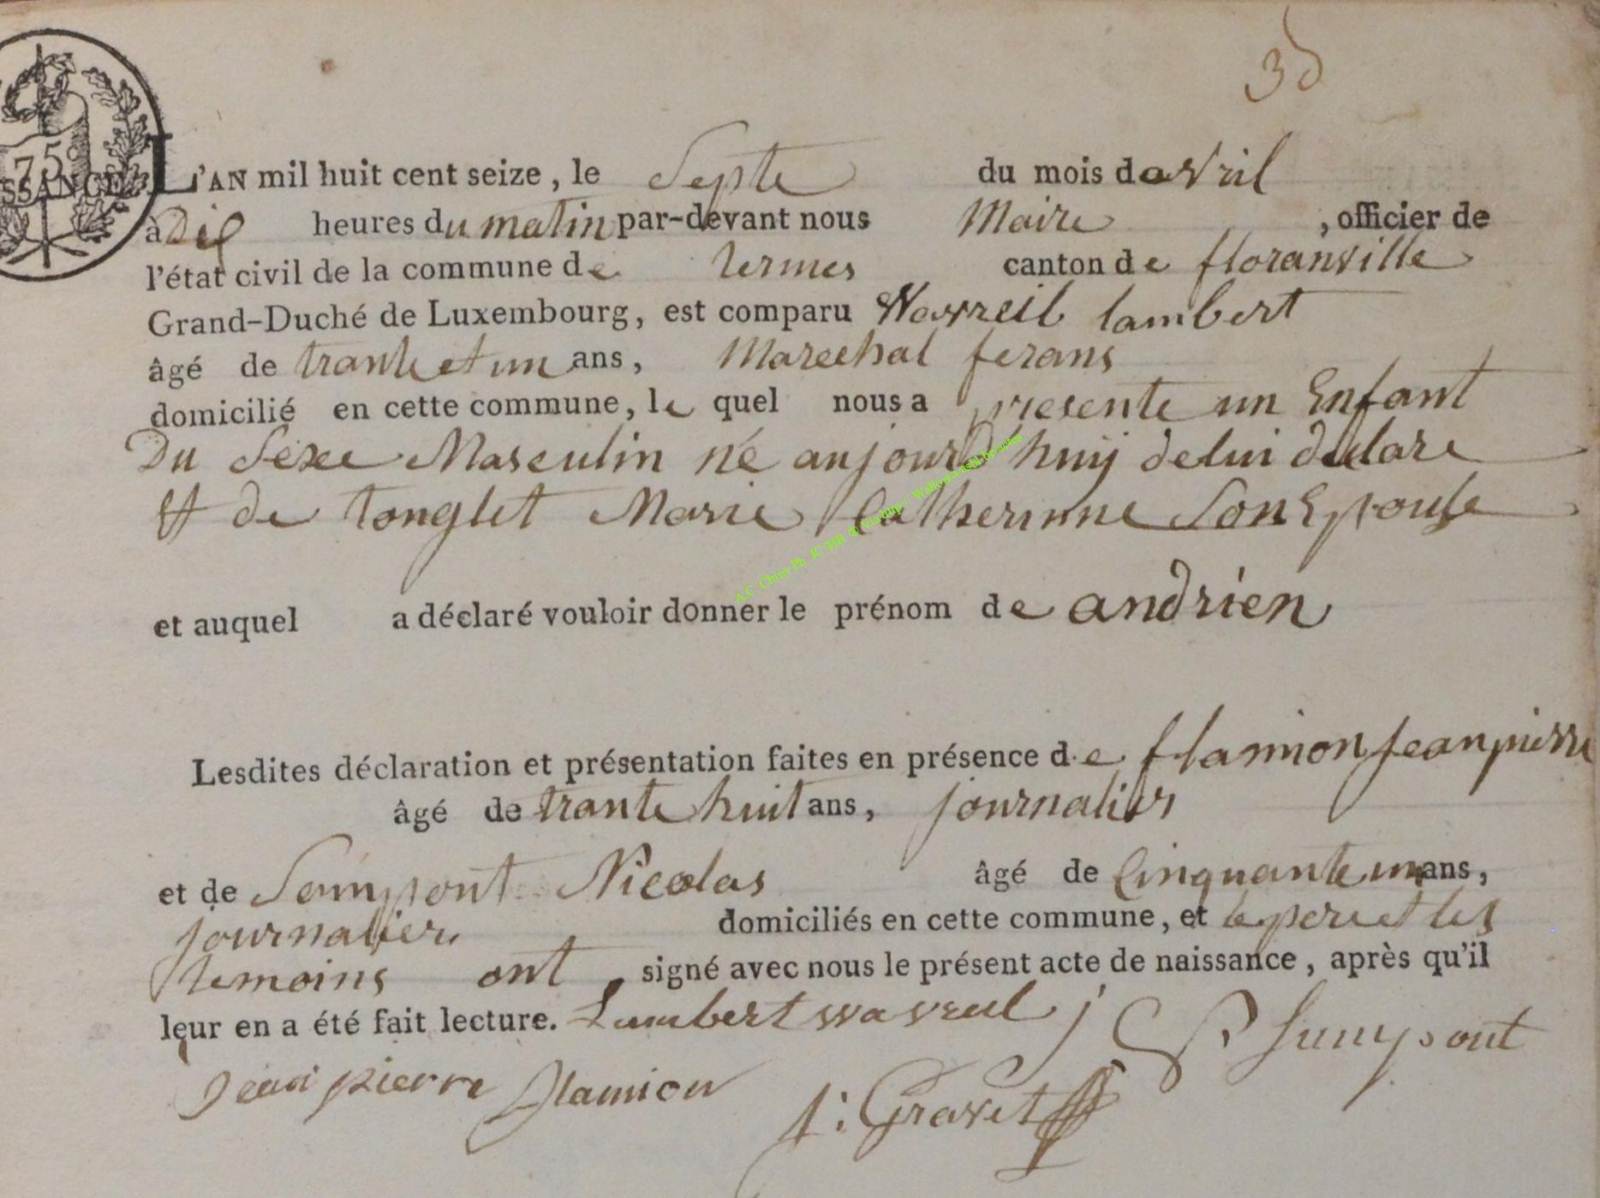 35
75
SSANCE
L'AN mil huit cent seize, le Septe du mois d'avril
à Dix heures du matin par-devant nous Maire, officier de
l'état civil de la commune de termes canton de floranville
Grand-Duché de Luxembourg, est comparu Wavreil lambert
âgé de trante et un ans, Marechal ferans
domicilié en cette commune, le quel nous a presente un Enfant
Du Sexe Masculin né aujourd'huÿ de lui declare
et de tonglet Marie Catherinne Son Epouse
et auquel a déclaré vouloir donner le prénom de andrien
Lesdites déclaration et présentation faites en présence de flamion jean pierre
âgé de trante huit ans, journalier
et de Sampont Nicolas âgé de Cinquante un ans,
journalier domiciliés en cette commune, et le pere et les
temoins ont signé avec nous le présent acte de naissance, après qu'il
leur en a été fait lecture. Lambert wavreil
jean pierre flamion
Gravet